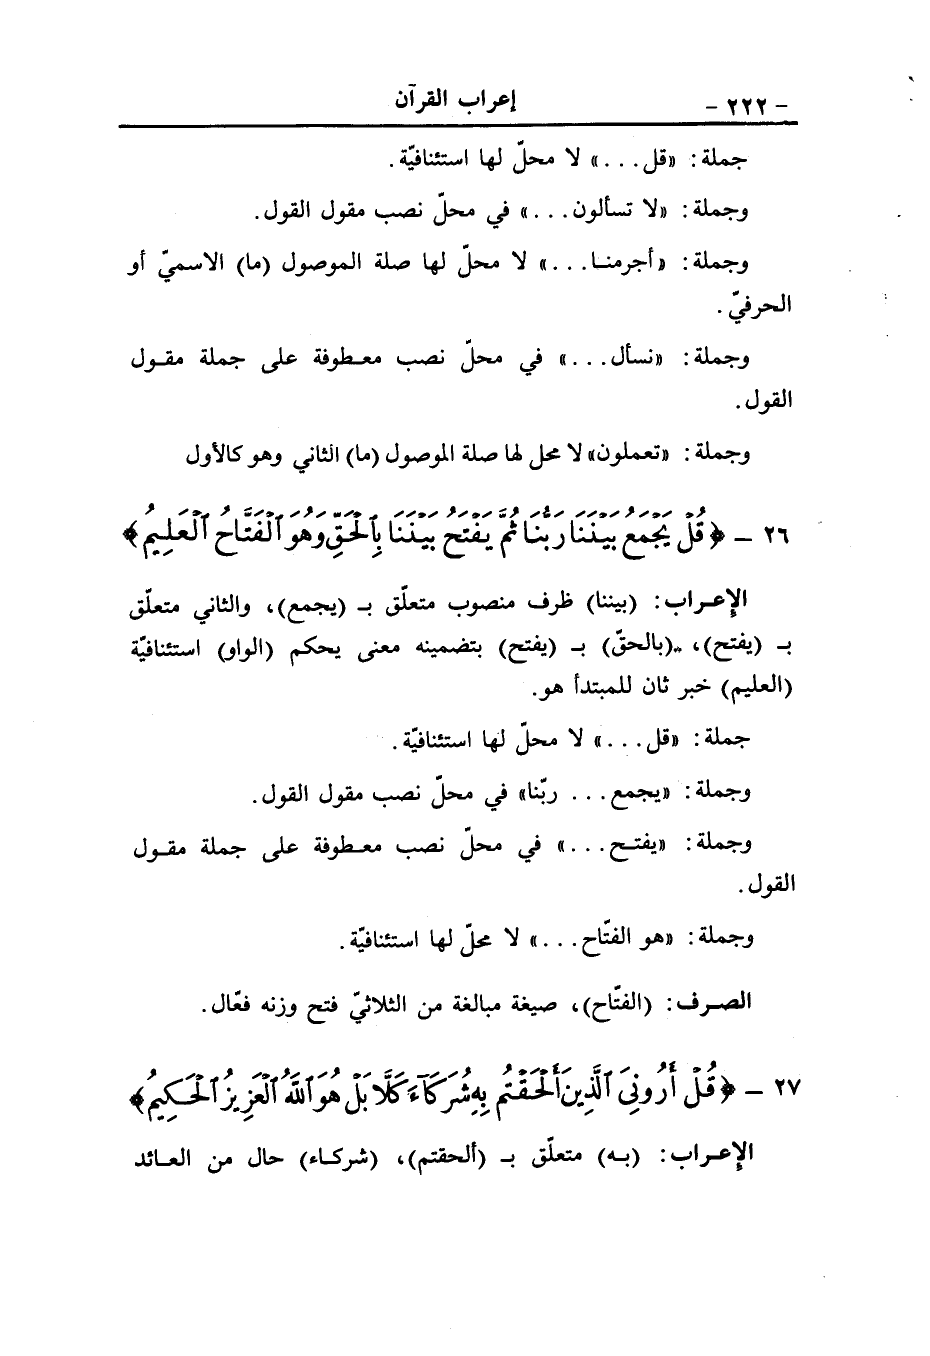 - ٢٢٢ - إعراب القرآن
جملة: «قل...» لا محلّ لها استئنافيّة.
وجملة: «لا تسألون...» في محلّ نصب مقول القول.
وجملة: «أجرمنـا...» لا محلّ لها صلة الموصول (ما) الاسميّ أو
الحرفيّ.
وجملة: «نسأل...» في محلّ نصب معـطوفة على جملة مقـول
القول.
وجملة: «تعملون» لا محل لها صلة الموصول (ما) الثاني وهو كالأول
٢٦ - ﴿قُلْ يَجْمَعُ بَيْنَنَا رَبُّنَا ثُمَّ يَفْتَحُ بَيْنَنَا بِٱلْحَقِّ وَهُوَ ٱلْفَتَّاحُ ٱلْعَلِيمُ﴾
الإعـراب: (بيننا) ظرف منصوب متعلّق بـ (يجمع)، والثاني متعلّق
بـ (يفتح)، (بالحقّ) بـ (يفتح) بتضمينه معنى يحكم (الواو) استئنافيّة
(العليم) خبر ثان للمبتدأ هو.
جملة: «قل...» لا محلّ لها استئنافيّة.
وجملة: «يجمع... ربّنا» في محلّ نصب مقول القول.
وجملة: «يفتـح...» في محلّ نصب معـطوفة على جملة مقـول
القول.
وجملة: «هو الفتّاح...» لا محلّ لها استئنافيّة.
الصـرف: (الفتّاح)، صيغة مبالغة من الثلاثيّ فتح وزنه فعّال.
٢٧ - ﴿قُلْ أَرُونِيَ ٱلَّذِينَ أَلْحَقْتُم بِهِۦ شُرَكَآءَ كَلَّا بَلْ هُوَ ٱللَّهُ ٱلْعَزِيزُ ٱلْحَكِيمُ﴾
الإعـراب: (بـه) متعلّق بـ (ألحقتم)، (شركـاء) حال من العـائد